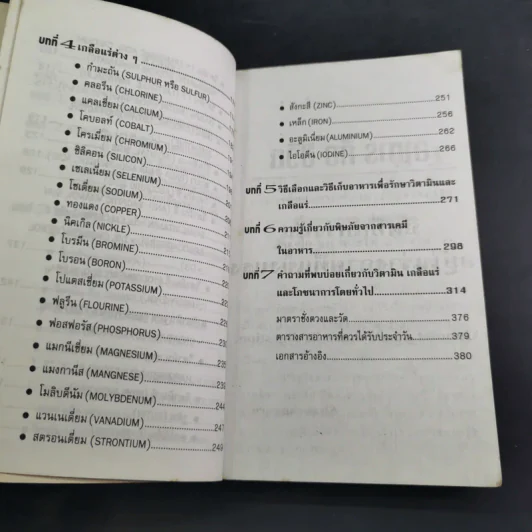 บทที่ 4 เกลือแร่ต่าง ๆ
● กำมะถัน (SULPHUR หรือ SULFUR)
● คลอรีน (CHLORINE)
● แคลเซี่ยม (CALCIUM)
● โคบอลท์ (COBALT)
● โครเมี่ยม (CHROMIUM)
● ซิลิคอน (SILICON)
● เซเลเนี่ยม (SELENIUM)
● โซเดี่ยม (SODIUM)
● ทองแดง (COPPER)
● นิคเกิล (NICKLE)
● โบรมีน (BROMINE)
● โบรอน (BORON)
● โปแตสเซี่ยม (POTASSIUM)
● ฟลูรีน (FLOURINE)
● ฟอสฟอรัส (PHOSPHORUS)
● แมกนีเซี่ยม (MAGNESIUM)
● แมงกานีส (MANGNESE) 239
● โมลิบดีนัม (MOLYBDENUM) 244
● แวนเนเดี่ยม (VANADIUM) 247
● สตรอนเตี่ยม (STRONTIUM) 249
● สังกะสี (ZINC) 251
● เหล็ก (IRON) 256
● อะลูมิเนี่ยม (ALUMINIUM) 262
● ไอโอดีน (IODINE) 266
บทที่ 5 วิธีเลือกและวิธีเก็บอาหารเพื่อรักษาวิตามินและ
เกลือแร่ 271
บทที่ 6 ความรู้เกี่ยวกับพิษภัยจากสารเคมี
ในอาหาร 298
บทที่ 7 คำถามที่พบบ่อยเกี่ยวกับวิตามิน เกลือแร่
และโภชนาการโดยทั่วไป 314
มาตราชั่งตวงและวัด 376
ตารางสารอาหารที่ควรได้รับประจำวัน 379
เอกสารอ้างอิง 380